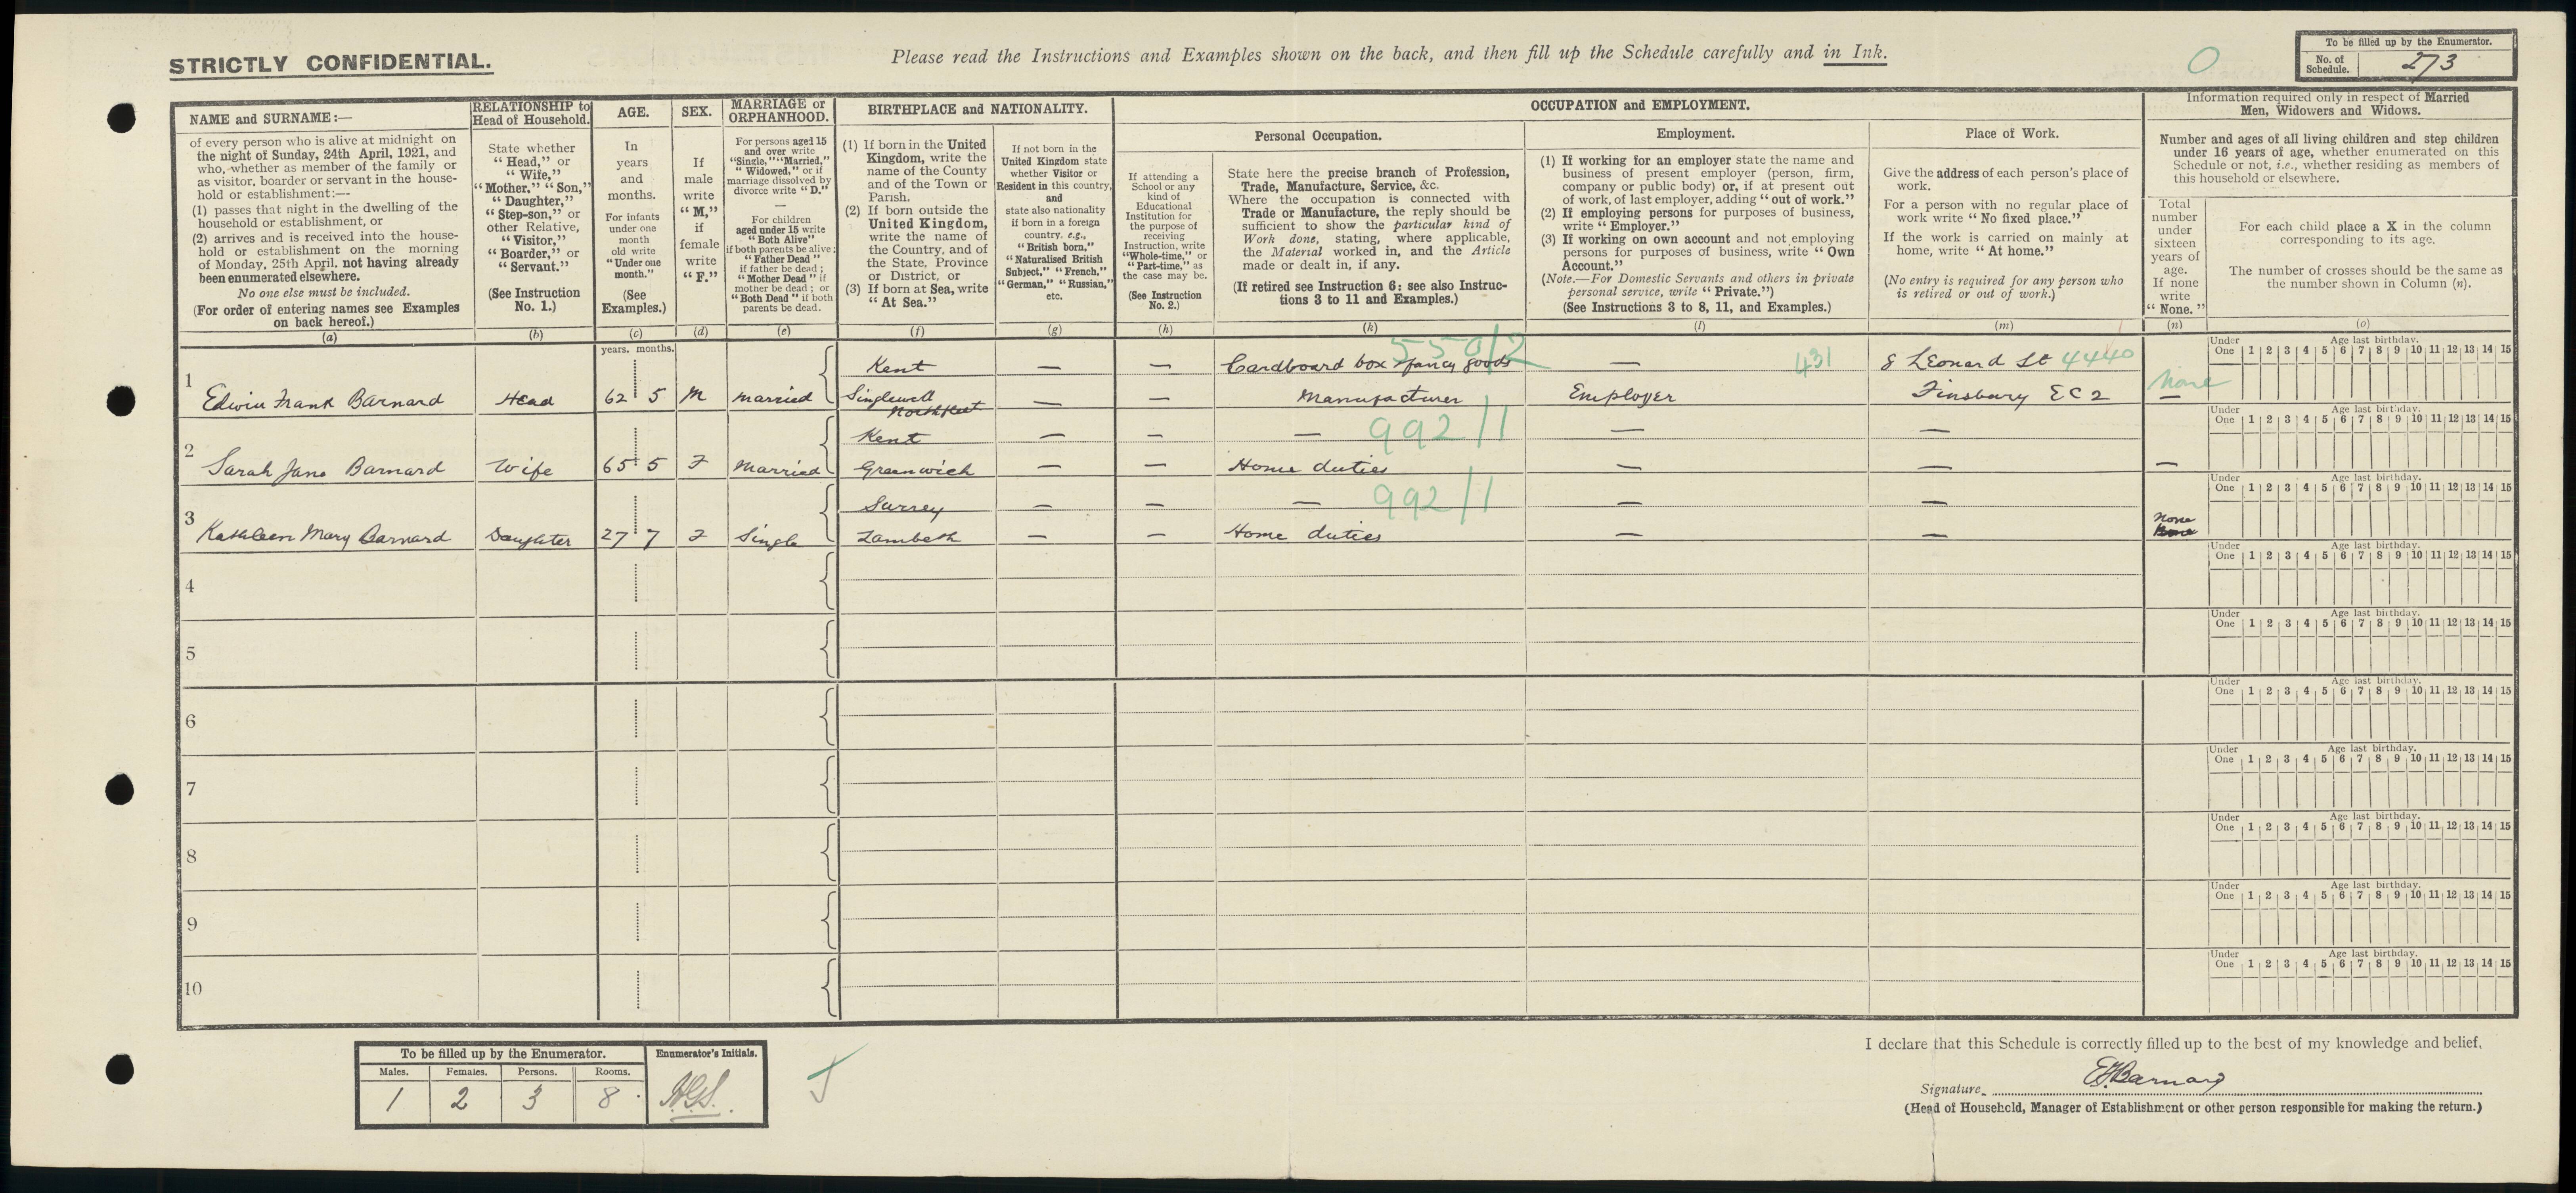 STRICTLY CONFIDENTIAL.
Please read the Instructions and Examples shown on the back, and then fill up the Schedule carefully and in Ink.
0
To be filled up by the Enumerator.
No. of Schedule. 273
NAME and SURNAME:—
of every person who is alive at midnight on
the night of Sunday, 24th April, 1921, and
who, whether as member of the family or
as visitor, boarder or servant in the house-
hold or establishment:—
(1) passes that night in the dwelling of the
household or establishment, or
(2) arrives and is received into the house-
hold or establishment on the morning
of Monday, 25th April, not having already
been enumerated elsewhere.
No one else must be included.
(For order of entering names see Examples
on back hereof.)
(a)
RELATIONSHIP to
Head of Household.
State whether
"Head," or
"Wife,"
"Mother," "Son,"
"Daughter,"
"Step-son," or
other Relative,
"Visitor,"
"Boarder," or
"Servant."
(See Instruction
No. 1.)
(b)
AGE.
In
years
and
months.
For infants
under one
month
old write
"Under one
month."
(See
Examples.)
(c)
SEX.
If
male
write
"M,"
if
female
write
"F."
(d)
MARRIAGE or
ORPHANHOOD.
For persons aged 15
and over write
"Single," "Married,"
"Widowed," or if
marriage dissolved by
divorce write "D."
—
For children
aged under 15 write
"Both Alive"
if both parents be alive;
"Father Dead"
if father be dead;
"Mother Dead" if
mother be dead; or
"Both Dead" if both
parents be dead.
(e)
BIRTHPLACE and NATIONALITY.
(1) If born in the United
Kingdom, write the
name of the County
and of the Town or
Parish.
(2) If born outside the
United Kingdom,
write the name of
the Country, and of
the State, Province
or District, or
(3) If born at Sea, write
"At Sea."
(f)
If not born in the
United Kingdom state
whether Visitor or
Resident in this country,
and
state also nationality
if born in a foreign
country, e.g.,
"British born,"
"Naturalised British
Subject," "French,"
"German," "Russian,"
etc.
(g)
OCCUPATION and EMPLOYMENT.
If attending a
School or any
kind of
Educational
Institution for
the purpose of
receiving
Instruction, write
"Whole-time," or
"Part-time," as
the case may be.
(See Instruction
No. 2.)
(h)
Personal Occupation.
State here the precise branch of Profession,
Trade, Manufacture, Service, &c.
Where the occupation is connected with
Trade or Manufacture, the reply should be
sufficient to show the particular kind of
Work done, stating, where applicable,
the Material worked in, and the Article
made or dealt in, if any.
(If retired see Instruction 6: see also Instruc-
tions 3 to 11 and Examples.)
(k)
Employment.
(1) If working for an employer state the name and
business of present employer (person, firm,
company or public body) or, if at present out
of work, of last employer, adding "out of work."
(2) If employing persons for purposes of business,
write "Employer."
(3) If working on own account and not employing
persons for purposes of business, write "Own
Account."
(Note.—For Domestic Servants and others in private
personal service, write "Private.")
(See Instructions 3 to 8, 11, and Examples.)
(l)
Place of Work.
Give the address of each person's place of
work.
For a person with no regular place of
work write "No fixed place."
If the work is carried on mainly at
home, write "At home."
(No entry is required for any person who
is retired or out of work.)
(m)
Information required only in respect of Married
Men, Widowers and Widows.
Number and ages of all living children and step children
under 16 years of age, whether enumerated on this
Schedule or not, i.e., whether residing as members of
this household or elsewhere.
Total
number
under
sixteen
years of
age.
If none
write
"None."
(n)
For each child place a X in the column
corresponding to its age.
The number of crosses should be the same as
the number shown in Column (n).
(o)
years. months.
1
Kent — — Cardboard box & fancy goods 550/2 — 431 8 Leonard St 4440
Edwin Frank Barnard Head 62 5 M Married Singlewell Northfleet — — Manufacturer Employer Finsbury EC2 none —
Under One 1 2 3 4 5 6 7 8 9 10 11 12 13 14 15
Age last birthday.
2
Kent — — — 992/1 — —
Sarah Jane Barnard Wife 65 5 F Married Greenwich — — Home duties — — —
Under One 1 2 3 4 5 6 7 8 9 10 11 12 13 14 15
Age last birthday.
3
Surrey — — — 992/1 — —
Kathleen Mary Barnard Daughter 27 7 F Single Lambeth — — Home duties — — None
Under One 1 2 3 4 5 6 7 8 9 10 11 12 13 14 15
Age last birthday.
4
Under One 1 2 3 4 5 6 7 8 9 10 11 12 13 14 15
Age last birthday.
5
Under One 1 2 3 4 5 6 7 8 9 10 11 12 13 14 15
Age last birthday.
6
Under One 1 2 3 4 5 6 7 8 9 10 11 12 13 14 15
Age last birthday.
7
Under One 1 2 3 4 5 6 7 8 9 10 11 12 13 14 15
Age last birthday.
8
Under One 1 2 3 4 5 6 7 8 9 10 11 12 13 14 15
Age last birthday.
9
Under One 1 2 3 4 5 6 7 8 9 10 11 12 13 14 15
Age last birthday.
10
Under One 1 2 3 4 5 6 7 8 9 10 11 12 13 14 15
Age last birthday.
To be filled up by the Enumerator.
Males. Females. Persons. Rooms.
1 2 3 8
Enumerator's Initials.
I declare that this Schedule is correctly filled up to the best of my knowledge and belief,
Signature EFBarnard
(Head of Household, Manager of Establishment or other person responsible for making the return.)